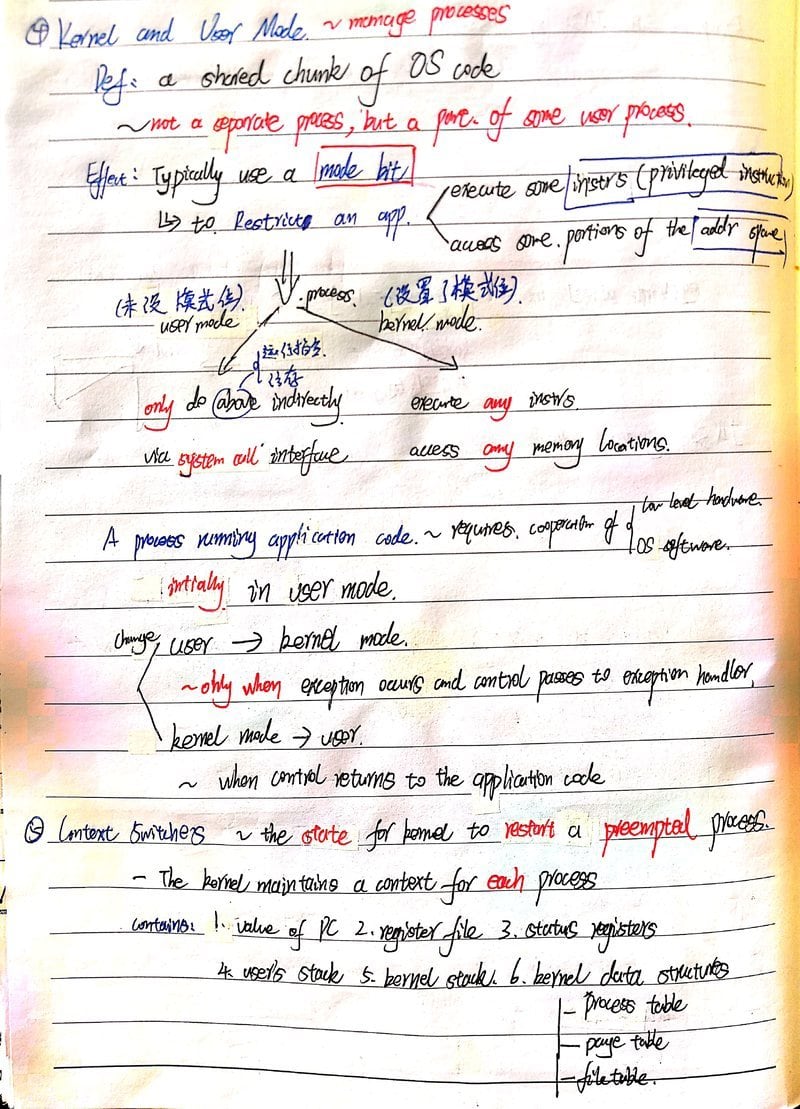 ④ Kernel and User Mode. ~ manage processes
Def: a shared chunk of OS code
~not a separate process, but a part of some user process.
Effect: Typically use a mode bit
execute some instrs (privileged instruction)
↳ to Restricts an app.
access some portions of the addr space
process.
(未设模式位) (设置了模式位)
user mode kernel mode.
运行指令
only do above indirectly execute any instrs.
via system call interface access any memory locations.
low level hardware.
A process running application code. ~ requires cooperation of
OS software.
intially in user mode.
change user → kernel mode.
~only when exception occurs and control passes to exception handler.
kernel mode → user.
~ when control returns to the application code
⑤ Context Switchers ~ the state for kernel to restart a preempted process.
- The kernel maintains a context for each process
contains: 1. value of PC 2. register file 3. status registers
4. user's stack 5. kernel stack. 6. kernel data structures
- process table
- page table
- file table.